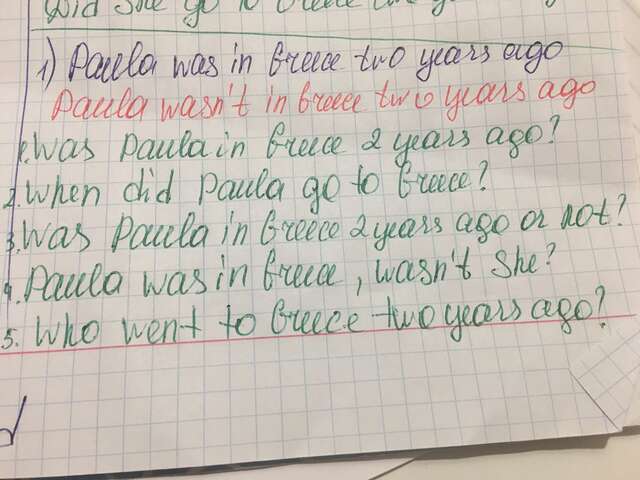 Did she go to Greece
1) Paula was in Greece two years ago
Paula wasn't in Greece two years ago
1. Was Paula in Greece 2 years ago?
2. When did Paula go to Greece?
3. Was Paula in Greece 2 years ago or not?
4. Paula was in Greece, wasn't she?
5. Who went to Greece two years ago?